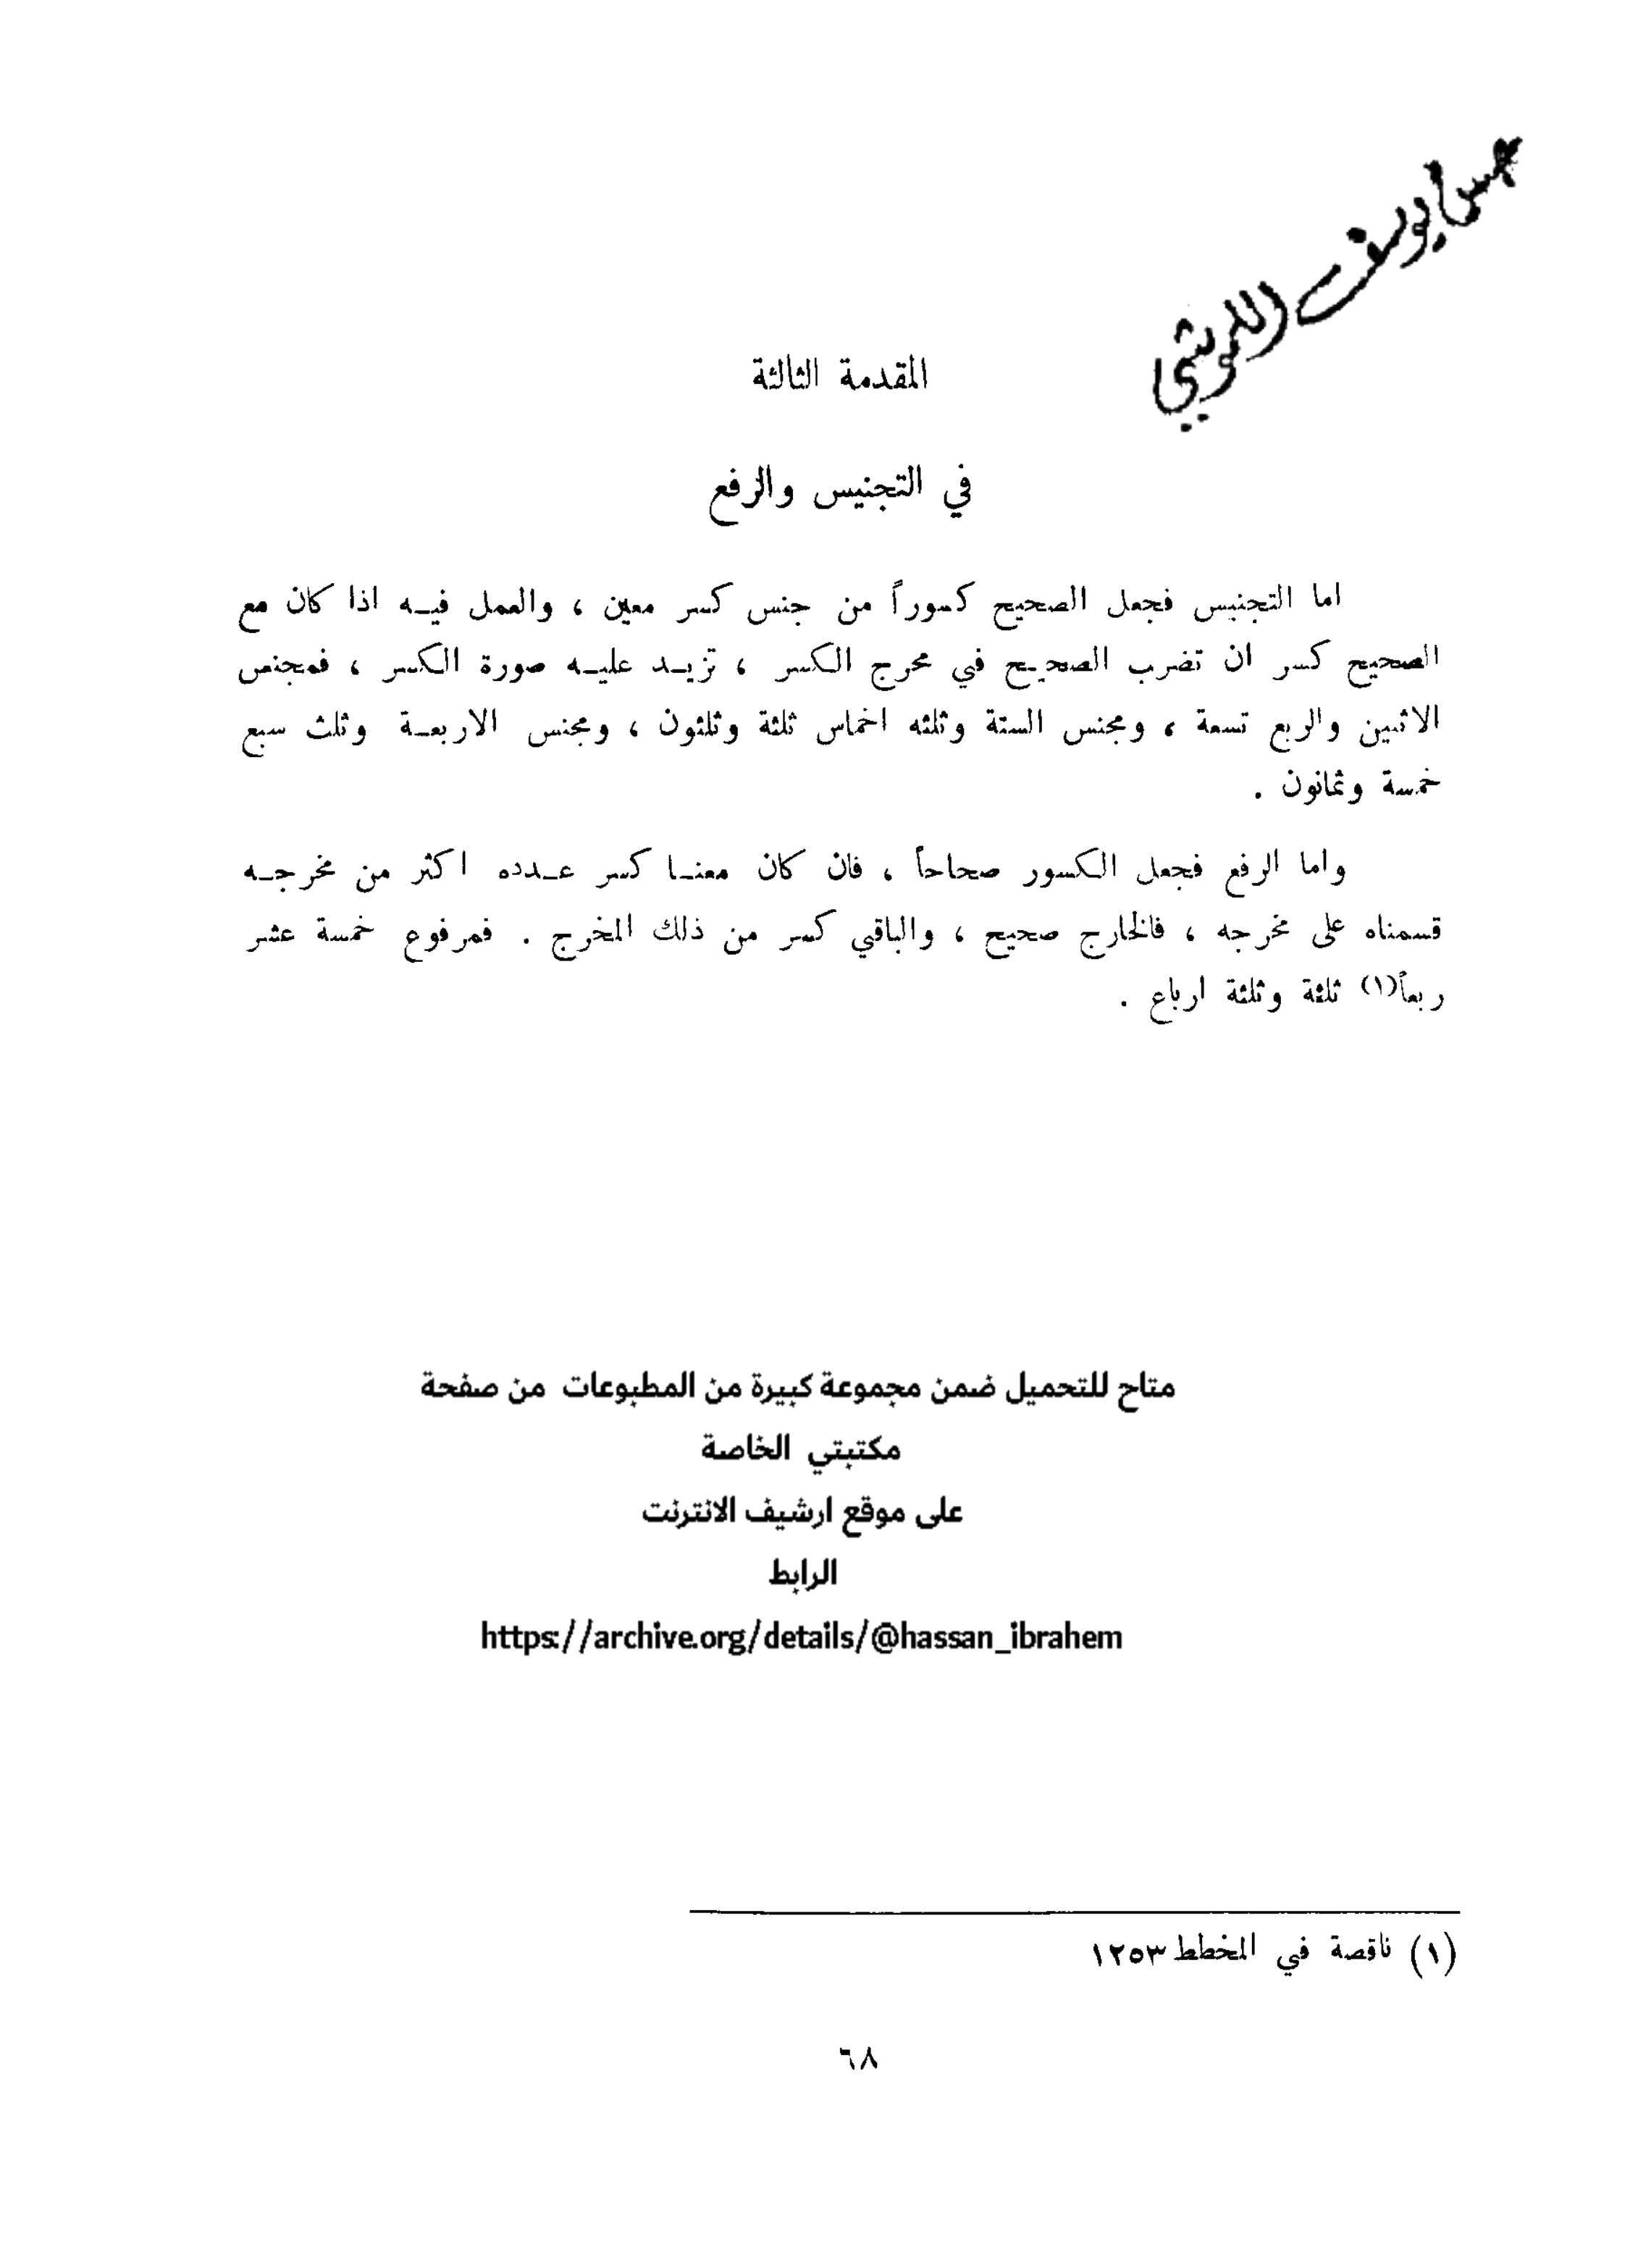 المقدمة الثالثة
في التجنيس والرفع
اما التجنيس فجعل الصحيح كسوراً من جنس كسر معين ، والعمل فيه اذا كان مع
الصحيح كسر ان تضرب الصحيح في مخرج الكسر ، تزيد عليه صورة الكسر ، فمجنس
الاثنين والربع تسعة ، ومجنس الستة وثلثه اخماس ثلثة وثلثون ، ومجنس الاربعة وثلث سبع
خمسة وثمانون .
واما الرفع فجعل الكسور صحاحاً ، فان كان معنا كسر عدده اكثر من مخرجه
قسمناه على مخرجه ، فالخارج صحيح ، والباقي كسر من ذلك المخرج . فمرفوع خمسة عشر
ربعاً(١) ثلثة وثلثة ارباع .
متاح للتحميل ضمن مجموعة كبيرة من المطبوعات من صفحة
مكتبتي الخاصة
على موقع ارشيف الانترنت
الرابط
https://archive.org/details/@hassan_ibrahem
(١) ناقصة في المخطط ١٢٥٣
٦٨